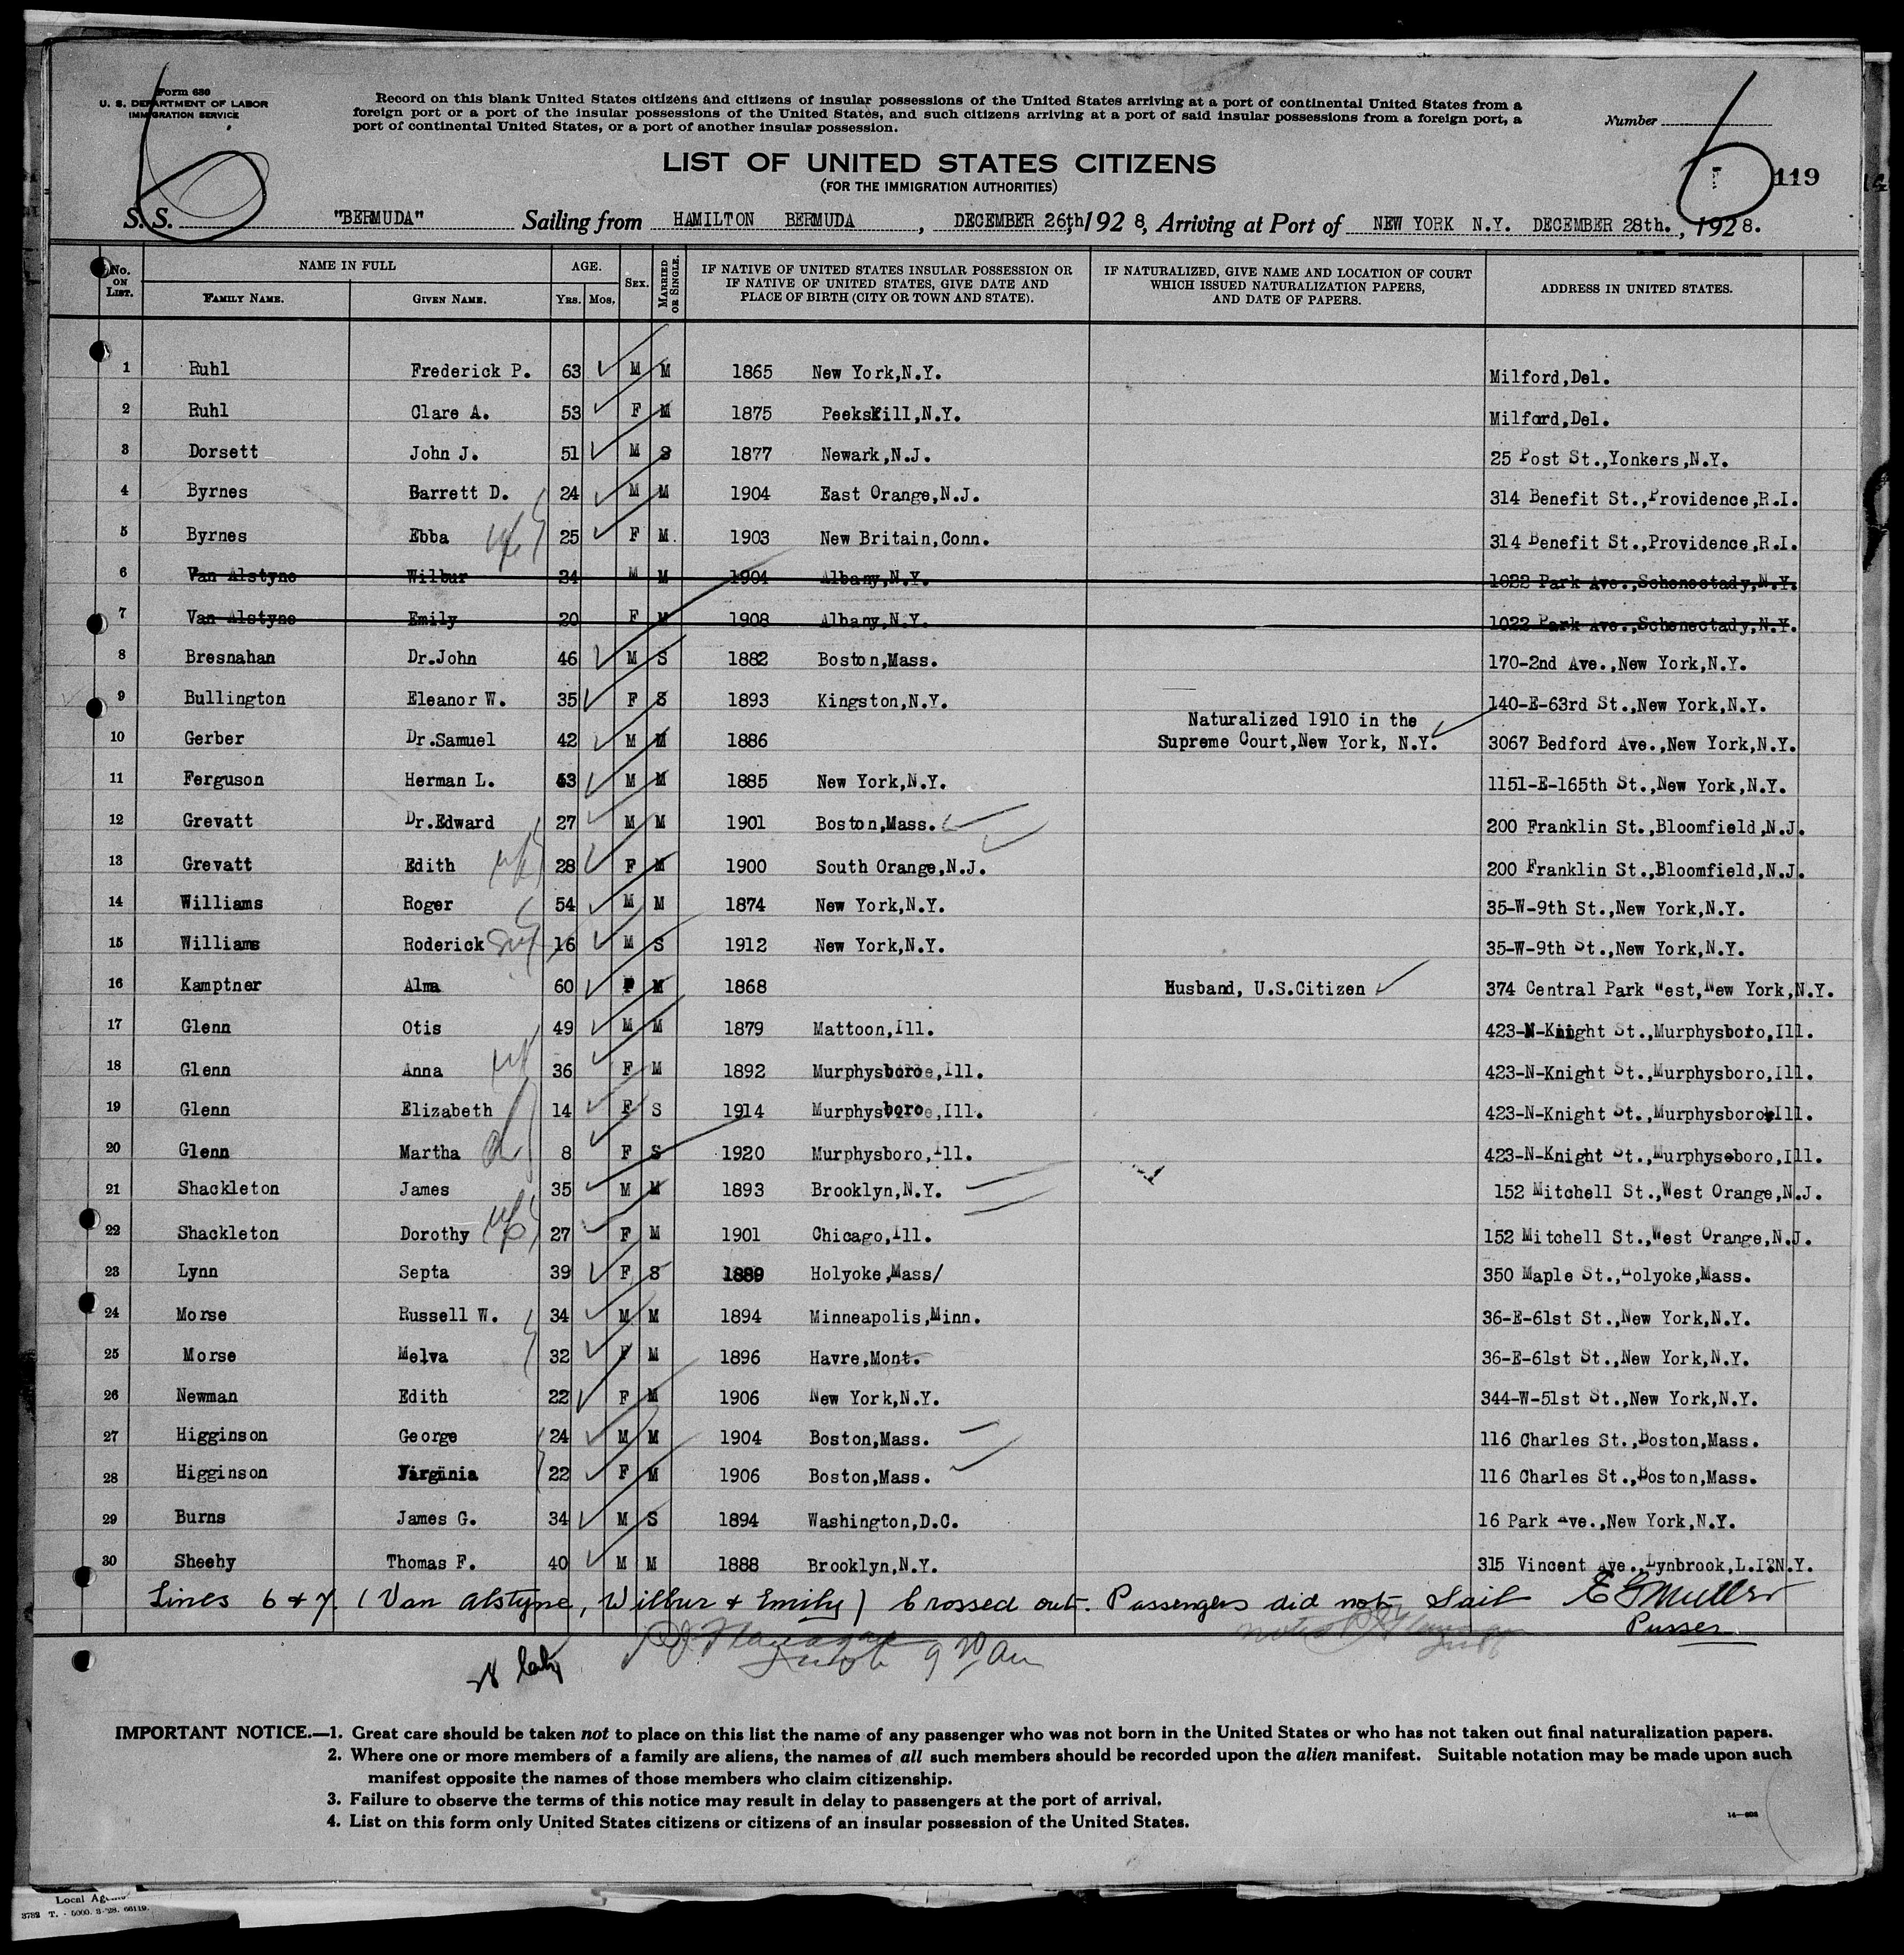 Form 630
U. S. DEPARTMENT OF LABOR
IMMIGRATION SERVICE
Record on this blank United States citizens and citizens of insular possessions of the United States arriving at a port of continental United States from a
foreign port or a port of the insular possessions of the United States, and such citizens arriving at a port of said insular possessions from a foreign port, a
port of continental United States, or a port of another insular possession.
Number
LIST OF UNITED STATES CITIZENS
(FOR THE IMMIGRATION AUTHORITIES)
119
S. S. "BERMUDA" Sailing from HAMILTON BERMUDA, DECEMBER 26th, 1928, Arriving at Port of NEW YORK N.Y. DECEMBER 28th., 1928.
No. ON LIST. NAME IN FULL AGE. SEX. MARRIED OR SINGLE. IF NATIVE OF UNITED STATES INSULAR POSSESSION OR IF NATIVE OF UNITED STATES, GIVE DATE AND PLACE OF BIRTH (CITY OR TOWN AND STATE). IF NATURALIZED, GIVE NAME AND LOCATION OF COURT WHICH ISSUED NATURALIZATION PAPERS, AND DATE OF PAPERS. ADDRESS IN UNITED STATES.
FAMILY NAME. GIVEN NAME. YRS. MOS.
1 Ruhl Frederick P. 63 M M 1865 New York,N.Y. Milford,Del.
2 Ruhl Clare A. 53 F M 1875 Peekskill,N.Y. Milford,Del.
3 Dorsett John J. 51 M S 1877 Newark,N.J. 25 Post St.,Yonkers,N.Y.
4 Byrnes Barrett D. 24 M M 1904 East Orange,N.J. 314 Benefit St.,Providence,R.I.
5 Byrnes Ebba 25 F M. 1903 New Britain,Conn. 314 Benefit St.,Providence,R.I.
6 Van Alstyne Wilbur 24 M M 1904 Albany,N.Y. 1022 Park Ave.,Schenectady,N.Y.
7 Van Alstyne Emily 20 F M 1908 Albany,N.Y. 1022 Park Ave.,Schenectady,N.Y.
8 Bresnahan Dr.John 46 M S 1882 Boston,Mass. 170-2nd Ave.,New York,N.Y.
9 Bullington Eleanor W. 35 F S 1893 Kingston,N.Y. 140-E-63rd St.,New York,N.Y.
10 Gerber Dr.Samuel 42 M M 1886 Naturalized 1910 in the Supreme Court,New York, N.Y. 3067 Bedford Ave.,New York,N.Y.
11 Ferguson Herman L. 43 M M 1885 New York,N.Y. 1151-E-165th St.,New York,N.Y.
12 Grevatt Dr.Edward 27 M M 1901 Boston,Mass. 200 Franklin St.,Bloomfield,N.J.
13 Grevatt Edith 28 F M 1900 South Orange,N.J. 200 Franklin St.,Bloomfield,N.J.
14 Williams Roger 54 M M 1874 New York,N.Y. 35-W-9th St.,New York,N.Y.
15 Williams Roderick 16 M S 1912 New York,N.Y. 35-W-9th St.,New York,N.Y.
16 Kamptner Alma 60 F M 1868 Husband, U.S.Citizen 374 Central Park West,New York,N.Y.
17 Glenn Otis 49 M M 1879 Mattoon,Ill. 423-N-Knight St.,Murphysboro,Ill.
18 Glenn Anna 36 F M 1892 Murphysboroe,Ill. 423-N-Knight St.,Murphysboro,Ill.
19 Glenn Elizabeth 14 F S 1914 Murphysboroe,Ill. 423-N-Knight St.,Murphysboro,Ill.
20 Glenn Martha 8 F S 1920 Murphysboro,Ill. 423-N-Knight St.,Murphyseboro,Ill.
21 Shackleton James 35 M M 1893 Brooklyn,N.Y. 152 Mitchell St.,West Orange,N.J.
22 Shackleton Dorothy 27 F M 1901 Chicago,Ill. 152 Mitchell St.,West Orange,N.J.
23 Lynn Septa 39 F S 1889 Holyoke,Mass/ 350 Maple St.,Holyoke,Mass.
24 Morse Russell W. 34 M M 1894 Minneapolis,Minn. 36-E-61st St.,New York,N.Y.
25 Morse Melva 32 F M 1896 Havre,Mont. 36-E-61st St.,New York,N.Y.
26 Newman Edith 22 F M 1906 New York,N.Y. 344-W-51st St.,New York,N.Y.
27 Higginson George 24 M M 1904 Boston,Mass. 116 Charles St.,Boston,Mass.
28 Higginson Virginia 22 F M 1906 Boston,Mass. 116 Charles St.,Boston,Mass.
29 Burns James G. 34 M S 1894 Washington,D.C. 16 Park Ave.,New York,N.Y.
30 Sheehy Thomas F. 40 M M 1888 Brooklyn,N.Y. 315 Vincent Ave.,Lynbrook,L.I.N.Y.
Lines 6 & 7. (Van Alstyne, Wilbur & Emily) Crossed out. Passengers did not Sail E G Muller
Purser
IMPORTANT NOTICE.—1. Great care should be taken not to place on this list the name of any passenger who was not born in the United States or who has not taken out final naturalization papers.
2. Where one or more members of a family are aliens, the names of all such members should be recorded upon the alien manifest. Suitable notation may be made upon such
manifest opposite the names of those members who claim citizenship.
3. Failure to observe the terms of this notice may result in delay to passengers at the port of arrival.
4. List on this form only United States citizens or citizens of an insular possession of the United States.